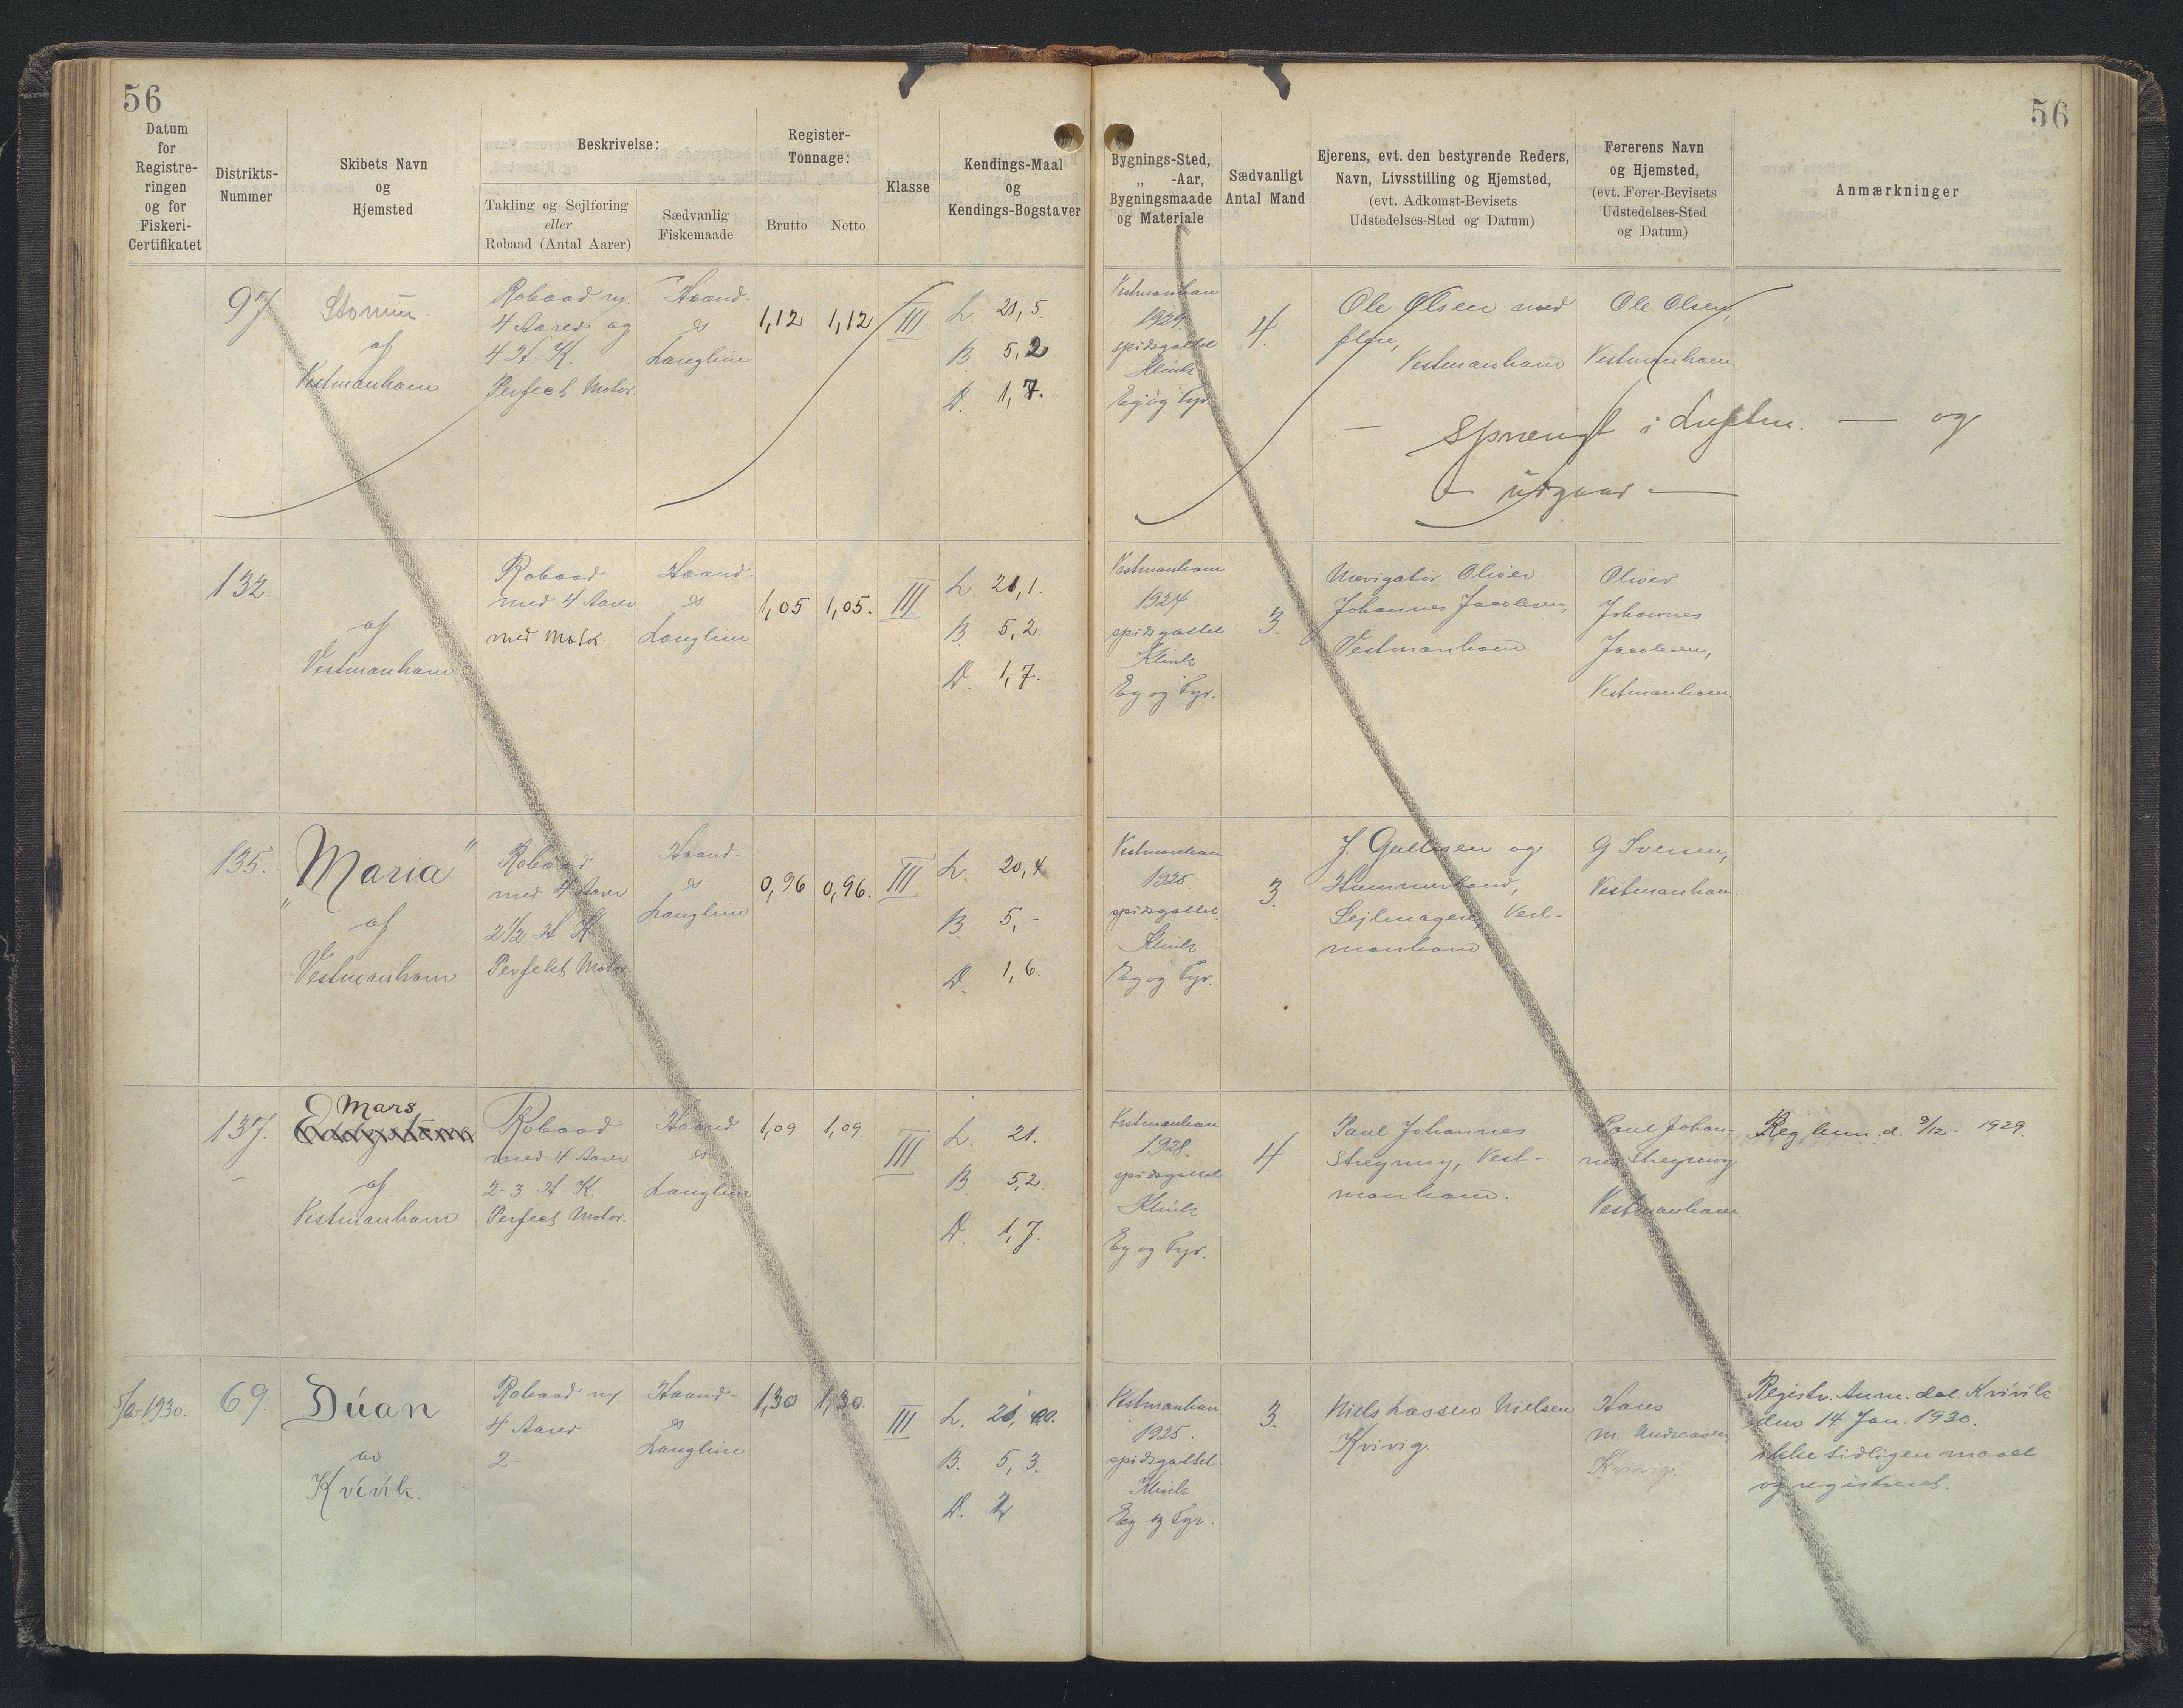 56
56
Datum
for
Registre-
ringen
og for
Fiskeri-
Certifikatet
Distrikts-
Nummer
Skibets Navn
og
Hjemsted
Beskrivelse:
Takling og Sejlføring
eller
Robaad (Antal Aarer)
Sædvanlig
Fiskemaade
Register-
Tonnage:
Brutto
Netto
Klasse
Kendings-Maal
og
Kendings-Bogstaver
Bygnings-Sted,
„ -Aar,
Bygningsmaade
og Materiale
Sædvanligt
Antal Mand
Ejerens, evt. den bestyrende Reders,
Navn, Livsstilling og Hjemsted,
(evt. Adkomst-Bevisets
Udstedelses-Sted og Datum)
Førerens Navn
og Hjemsted,
(evt. Fører-Bevisets
Udstedelses-Sted
og Datum)
Anmærkninger
97
af
Vestmanhavn
Robaad m/
4 Aarer og
4 H. K.
Perfect Motor.
Haand-
&
Langline
1,12
1,12
III
L. 21,5.
B. 5,2
D. 1,7.
Vestmanhavn
1924.
spidsgattet
Klink
Eg og Fyr.
4.
Ole Olsen med
flere,
Vestmanhavn
Ole Olsen,
Vestmanhavn
— Sprængt i Luften. — og
— udgaar —
132.
af
Vestmanhavn
Robaad
med 4 Aarer
med Motor.
Haand-
&
Langline
1,05
1,05.
III
L. 21,1.
B. 5,2.
D. 1,7.
Vestmanhavn
1924
spidsgattet
Klink
Eg og Fyr.
3.
Navigatør Oliver
Johannes Jacobsen,
Vestmanhavn
Oliver
Johannes
Jacobsen,
Vestmanhavn.
135.
„Maria"
af
Vestmanhavn
Robaad
med 4 Aarer
2½ H K
Perfekt Motor
Haand-
&
Langline
0,96
0,96.
III
L. 20,4
B. 5,-
D. 1,6.
Vestmanhavn
1925.
spidsgattet
Klink
Eg og Fyr.
3.
J. og
Sejlmager, Vest-
manhavn
G Iversen,
Vestmanhavn.
137.
Mars
af
Vestmanhavn
Robaad
med 4 Aarer
2-3 H. K.
Perfect Motor.
Haand
&
Langline
1,09
1,09.
III
L. 21.
B. 5,2.
D. 1,7.
Vestmanhavn
1928.
spidsgattet
Klink
Eg og Fyr.
4
Paul Johannes
Streymoy, Vest-
manhavn.
Paul Johan-
nes Streymoy
Vestmanhavn
d. 9/12 1929.
1930.
69.
Dúan
av
Kvívík.
Robaad m/
4 Aarer
2-
Haand-
&
Langline
1,30
1,30
III
L.
B. 5,3.
D. 2
Vestmanhavn
1925.
spidsgattet
Klink
Eg og Fyr.
3.
Niels Lassen Nielsen
Kvivig.
Hans
M. Andreasen,
Kvivig.
Registr. Anm. dat. Kvívík
den 14 Jan. 1930.
ikke tidligere maalt
og registreret.